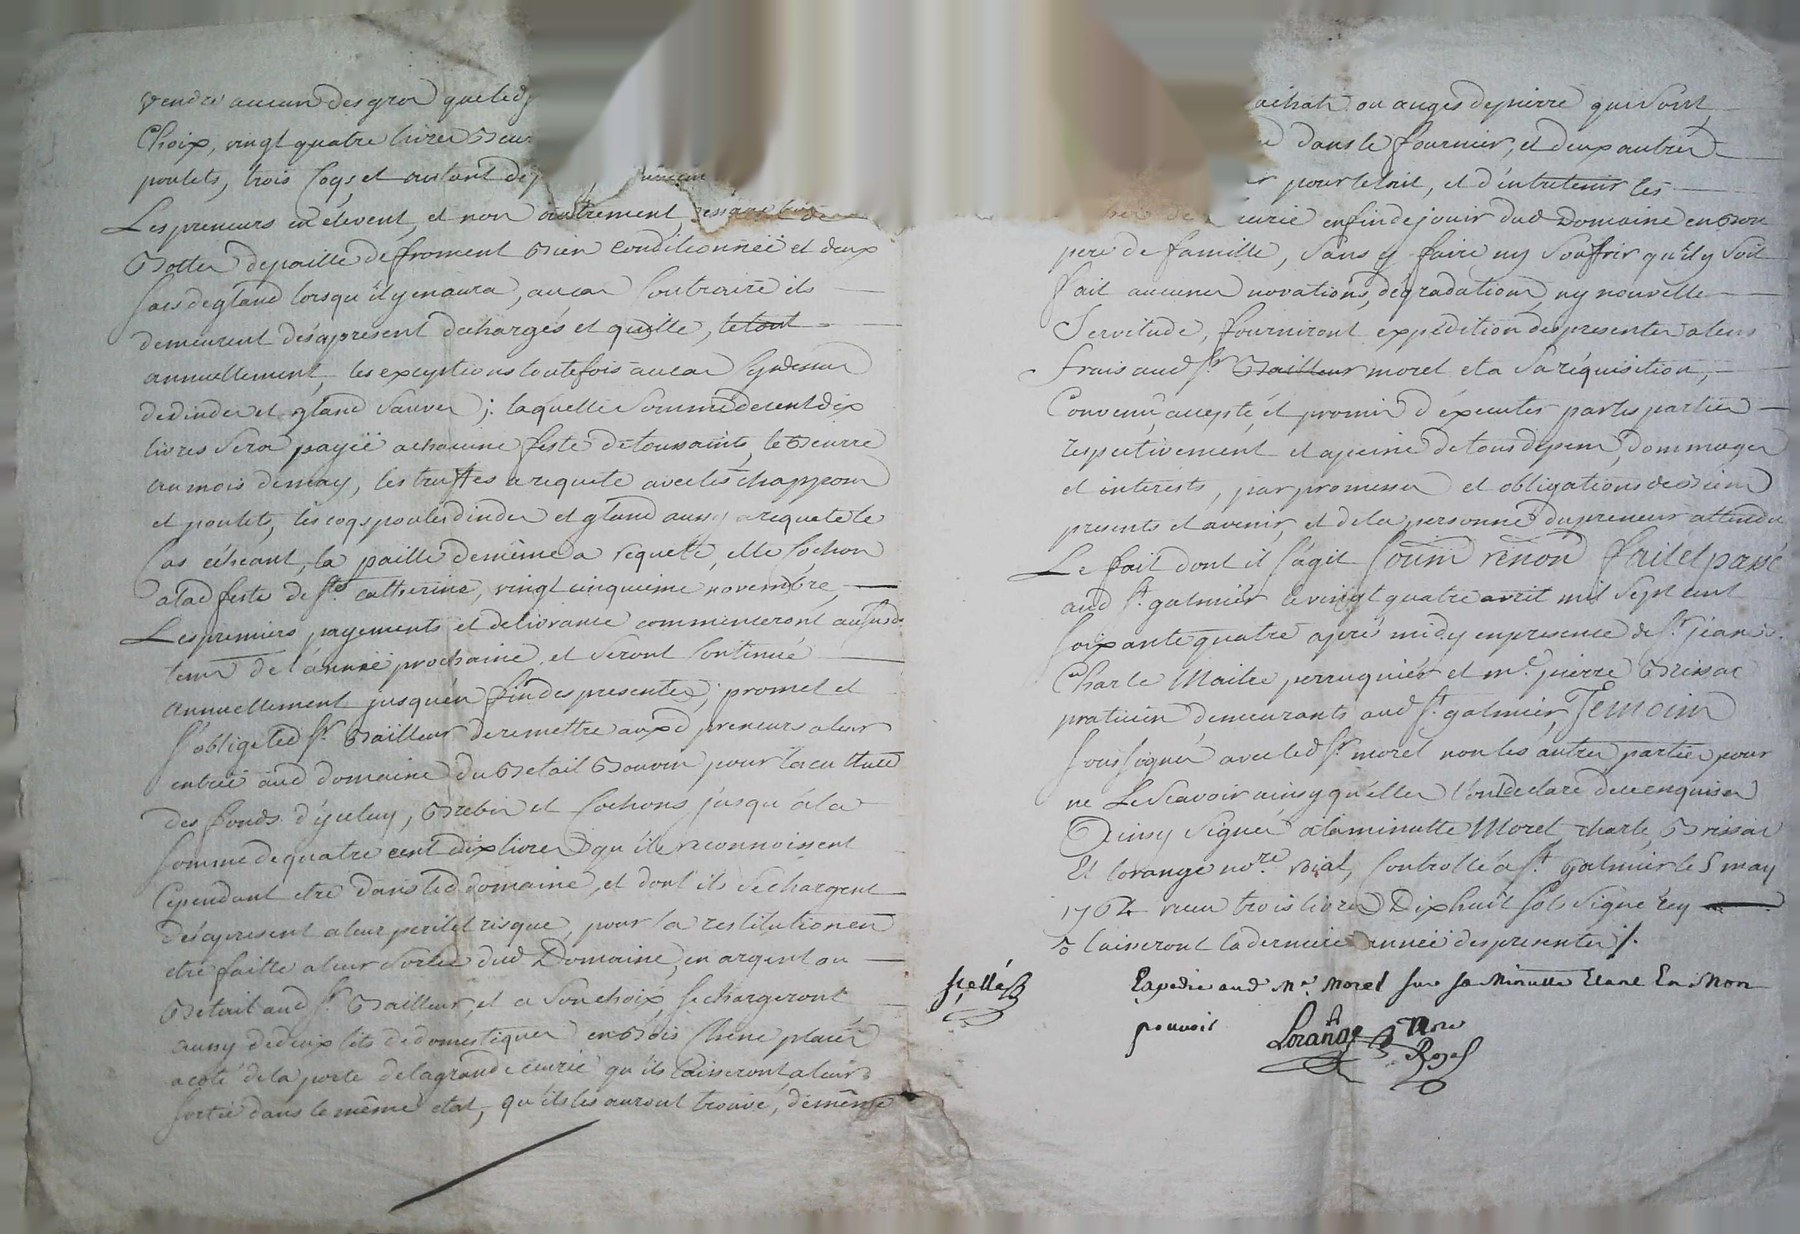 vendre aucun des gros que led
Choix, vingt quatre livres Beur
poulets, trois Coqs et autant de
Les preneurs en élevent, et non autrement
Bottes de paille de froment Bien conditionnëe et deux
sacs de gland lorsqu'il y en aura, au cas Contraire ils
demeurent dès apresent dechargés et quitte, le tout
annuellement, les exceptions toutefois au cas Cy dessus
de dindes et gland Sauves ; laquelle Somme de cent dix
livres Sera payëe a chacune feste de toussaints, le Beurre
au mois de may, les truffes a requete avec les chappons
et poulets, les coqs poules dindes et gland aussy a requete le
Cas écheant, la paille de même a requete, et le Cochon
a lad feste de Ste catherine, vingt cinquieme novembre
Les premiers payements et delivrance commenceront aux susds
tems de l'annëe prochaine et seront Continué
annuellement jusqu'én fin des presentes ; promet et
s'oblige led Sr. Bailleur de remettre auxd preneurs a leur
entrëe aud domaine du Betail Bovin pour la culture
des fonds d'yceluy, Brebis et Cochons jusqu'à la
somme de quatre cent dix livres qu'ils reconnoissent
Cependant etre dans led domaine, et dont ils Se chargent
dès apresent a leur peril et risque, pour la restitution en
etre faitte a leur Sortie dud Domaine, en argent ou
Betail aud Sr. Bailleur, et a Son choix Se chargeront
aussy de deux lits de domestiques en Bois Chêne placés
a coté de la porte de la grande écurie qu'ils laisseront a leur
sortie dans le même etat, qu'ils les auront trouvé, de même
achats ou auges de pierre qui Sont
dans le fournier, et deux autres
pour le lait, et d'entretenir les
écurie enfin de jouir dud Domaine en Bon
pere de famille, Sans y faire ny Souffrir qu'il y Soit
fait aucunes novations, dégradations ny nouvelle
Servitude, fourniront expédition des presentes a leurs
frais aud Sr. Bailleur morel et a Sa réquisition,
Convenu, accepté, et promis d'éxecuter par les parties
respectivement et a peine de tous depens, dommages
et interests, par promesses et obligations de Biens
presents et avenir, et de la personne du preneur attendu
Le fait dont il s'agit Soum renon fait et passé
aud St. galmier le vingt quatre avril mil Sept cent
soixante quatre après midy en presence de Sr. jean
Charle Maitre perruquiér et me. pierre Brissac
praticien demeurants aud St. galmier, Temoins
soussignés avec led Sr. morel non les autres parties pour
ne Le Scavoir ainsy qu'elles l'ont declaré de ce enquises
Ainsy Signés a la minutte Morel, charle, Brissac
Et Lorange nore. roial, Controllé a St. Galmier le 5 may
1764 reçu trois livres Dix huit sols Signé rey
laisseront la derniere annëe des presentes
scellé
Expedie aud Mr. Morel sur sa Minutte Etant En Mon
pouvoir
Lorange Nore
Royal